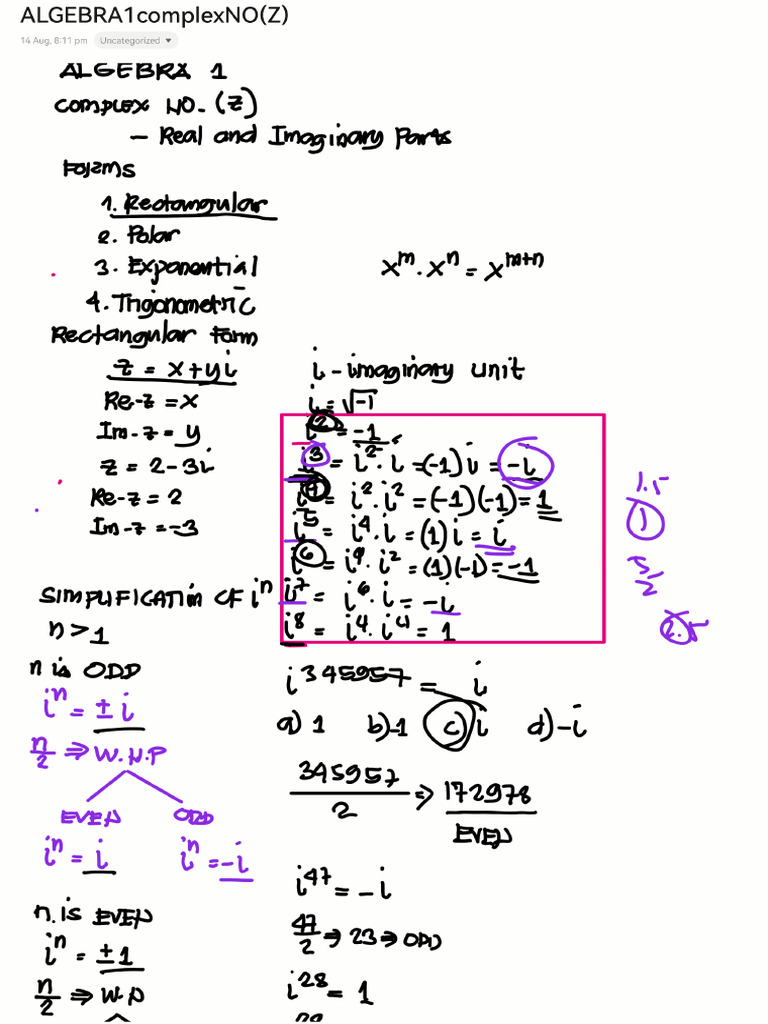 ALGEBRA1complexNO(Z)
14 Aug, 8:11 pm Uncategorized
ALGEBRA 1
COMPLEX NO. (Z)
– Real and Imaginary Parts
Forms
1. Rectangular
2. Polar
3. Exponential
x^m · x^n = x^{m+n}
4. Trigonometric
Rectangular Form
z = x + yi
i – imaginary unit
Re-z = x
i = √-1
Im-z = y
i^2 = -1
z = 2 - 3i
i^3 = i^2 · i = (-1)i = -i
Re-z = 2
i^4 = i^2 · i^2 = (-1)(-1) = 1
Im-z = -3
i^5 = i^4 · i = (1)i = i
i^6 = i^4 · i^2 = (1)(-1) = -1
i^7 = i^6 · i = -i
i^8 = i^4 · i^4 = 1
1.5
1
5/2
2.5
SIMPLIFICATIN OF i^n
n > 1
n is ODD
i^n = ± i
n/2 ⇒ W.N.P
EVEN ODD
i^n = i i^n = -i
n is EVEN
i^n = ± 1
n/2 ⇒ W.P
i^345957 = i
a) 1 b) -1 c) i d) -i
345957/2 ⇒ 172978
EVEN
i^47 = -i
47/2 ⇒ 23 ⇒ ODD
i^28 = 1